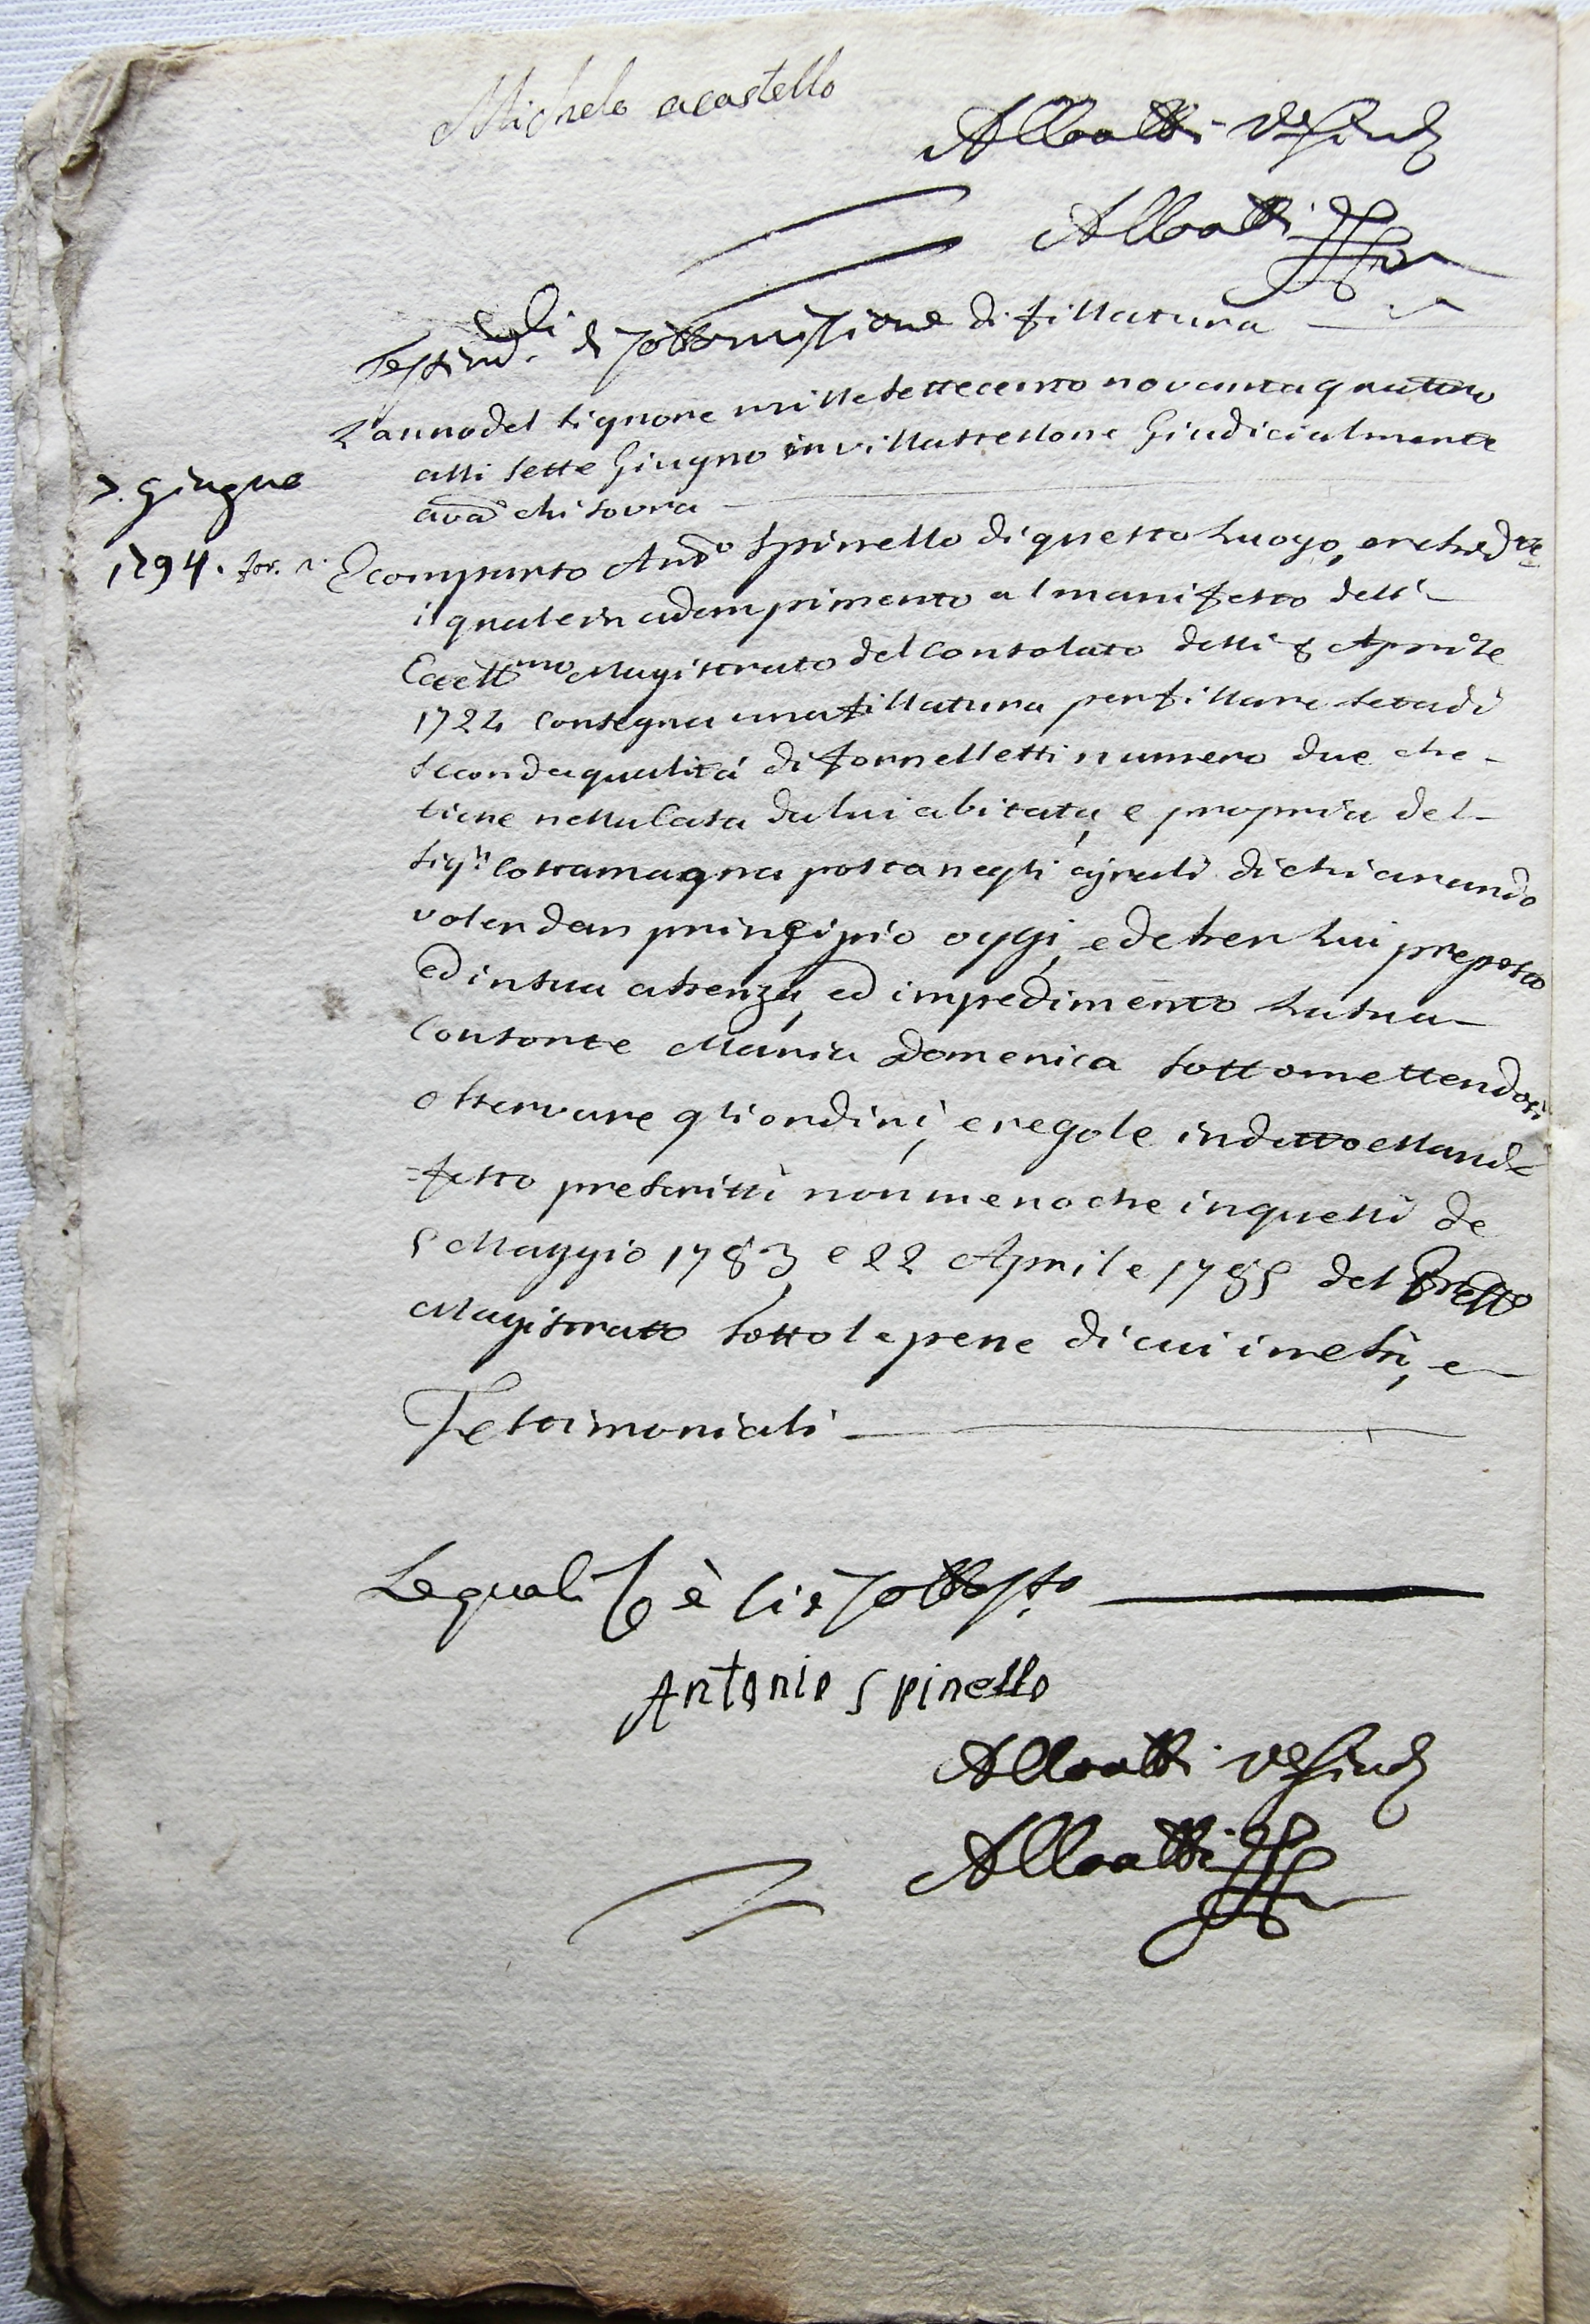 Michele acastello
Alloatti
Alloatti
Testim.li di Sottomissione di fillatura
L'anno del Signore mille settecento novanta quattro
alli sette Giugno in villastellone Giudicialmente
avā chi sovra
7. Giugno
1794.
È comparso Ant.o Spinello di questo Luogo,
il quale in adempimento al manifesto dell'
Eccell.mo Magistrato del Consolato delli 8 Aprile
1724 consegna una fillatura per fillare seta di
seconda qualità di fornelletti numero due che
tiene nella Casa da lui abitata, e propria del
Sig.r Costamagna posta negli ajrali dichiarando
voler dar principio oggi, ed esser lui preposto
ed in sua assenza, ed impedimento la sua
Consorte Maria Domenica sottomettendosi
osservare gli ordini, e regole in detto Mani=
=festo prescritti non meno che in quelli de
5 Maggio 1783, e 22 Aprile 1785 del
Magistratto sotto le pene di cui in essi, e
Testimoniali
Le quali si è sottos.to
Antonio Spinello
Alloatti
Alloatti